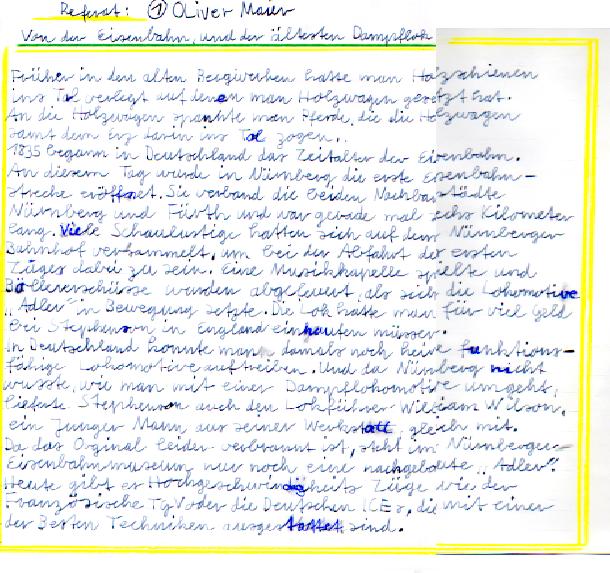 Referat: ① Oliver Maier
Von der Eisenbahn, und der ältesten Dampflok
Früher in den alten Bergwerken hatte man Holzschienen
ins Tal verlegt auf denen man Holzwagen gesetzt hat.
An die Holzwagen spannte man Pferde, die die Holzwagen
samt dem Erz darin ins Tal zogen.
1835 begann in Deutschland das Zeitalter der Eisenbahn.
An diesem Tag wurde in Nürnberg die erste Eisenbahn-
strecke eröffnet. Sie verband die beiden Nachbarstädte
Nürnberg und Fürth und war gerade mal sechs Kilometer
lang. Viele Schaulustige hatten sich auf dem Nürnberger
Bahnhof versammelt, um bei der Abfahrt des ersten
Zuges dabei zu sein. Eine Musikkapelle spielte und
Böllerschüsse wurden abgefeuert, als sich die Lokomotive
"Adler" in Bewegung setzte. Die Lok hatte man für viel Geld
bei Stephenson in England einkaufen müssen.
In Deutschland konnte man damals noch keine funktions-
fähige Lokomotive auftreiben. Und da Nürnberg nicht
wusste, wie man mit einer Dampflokomotive umgeht,
lieferte Stephenson auch den Lokführer William Wilson,
ein Junger Mann aus seiner Werkstatt gleich mit.
Da das Orginal leider verbrannt ist, steht im Nürnberger
Eisenbahnmuseum nur noch eine nachgebaute "Adler".
Heute gibt es Hochgeschwindigkeits Züge wie der
Französische TgV oder die Deutschen ICEs, die mit einer
der Besten Techniken ausgestattet sind.